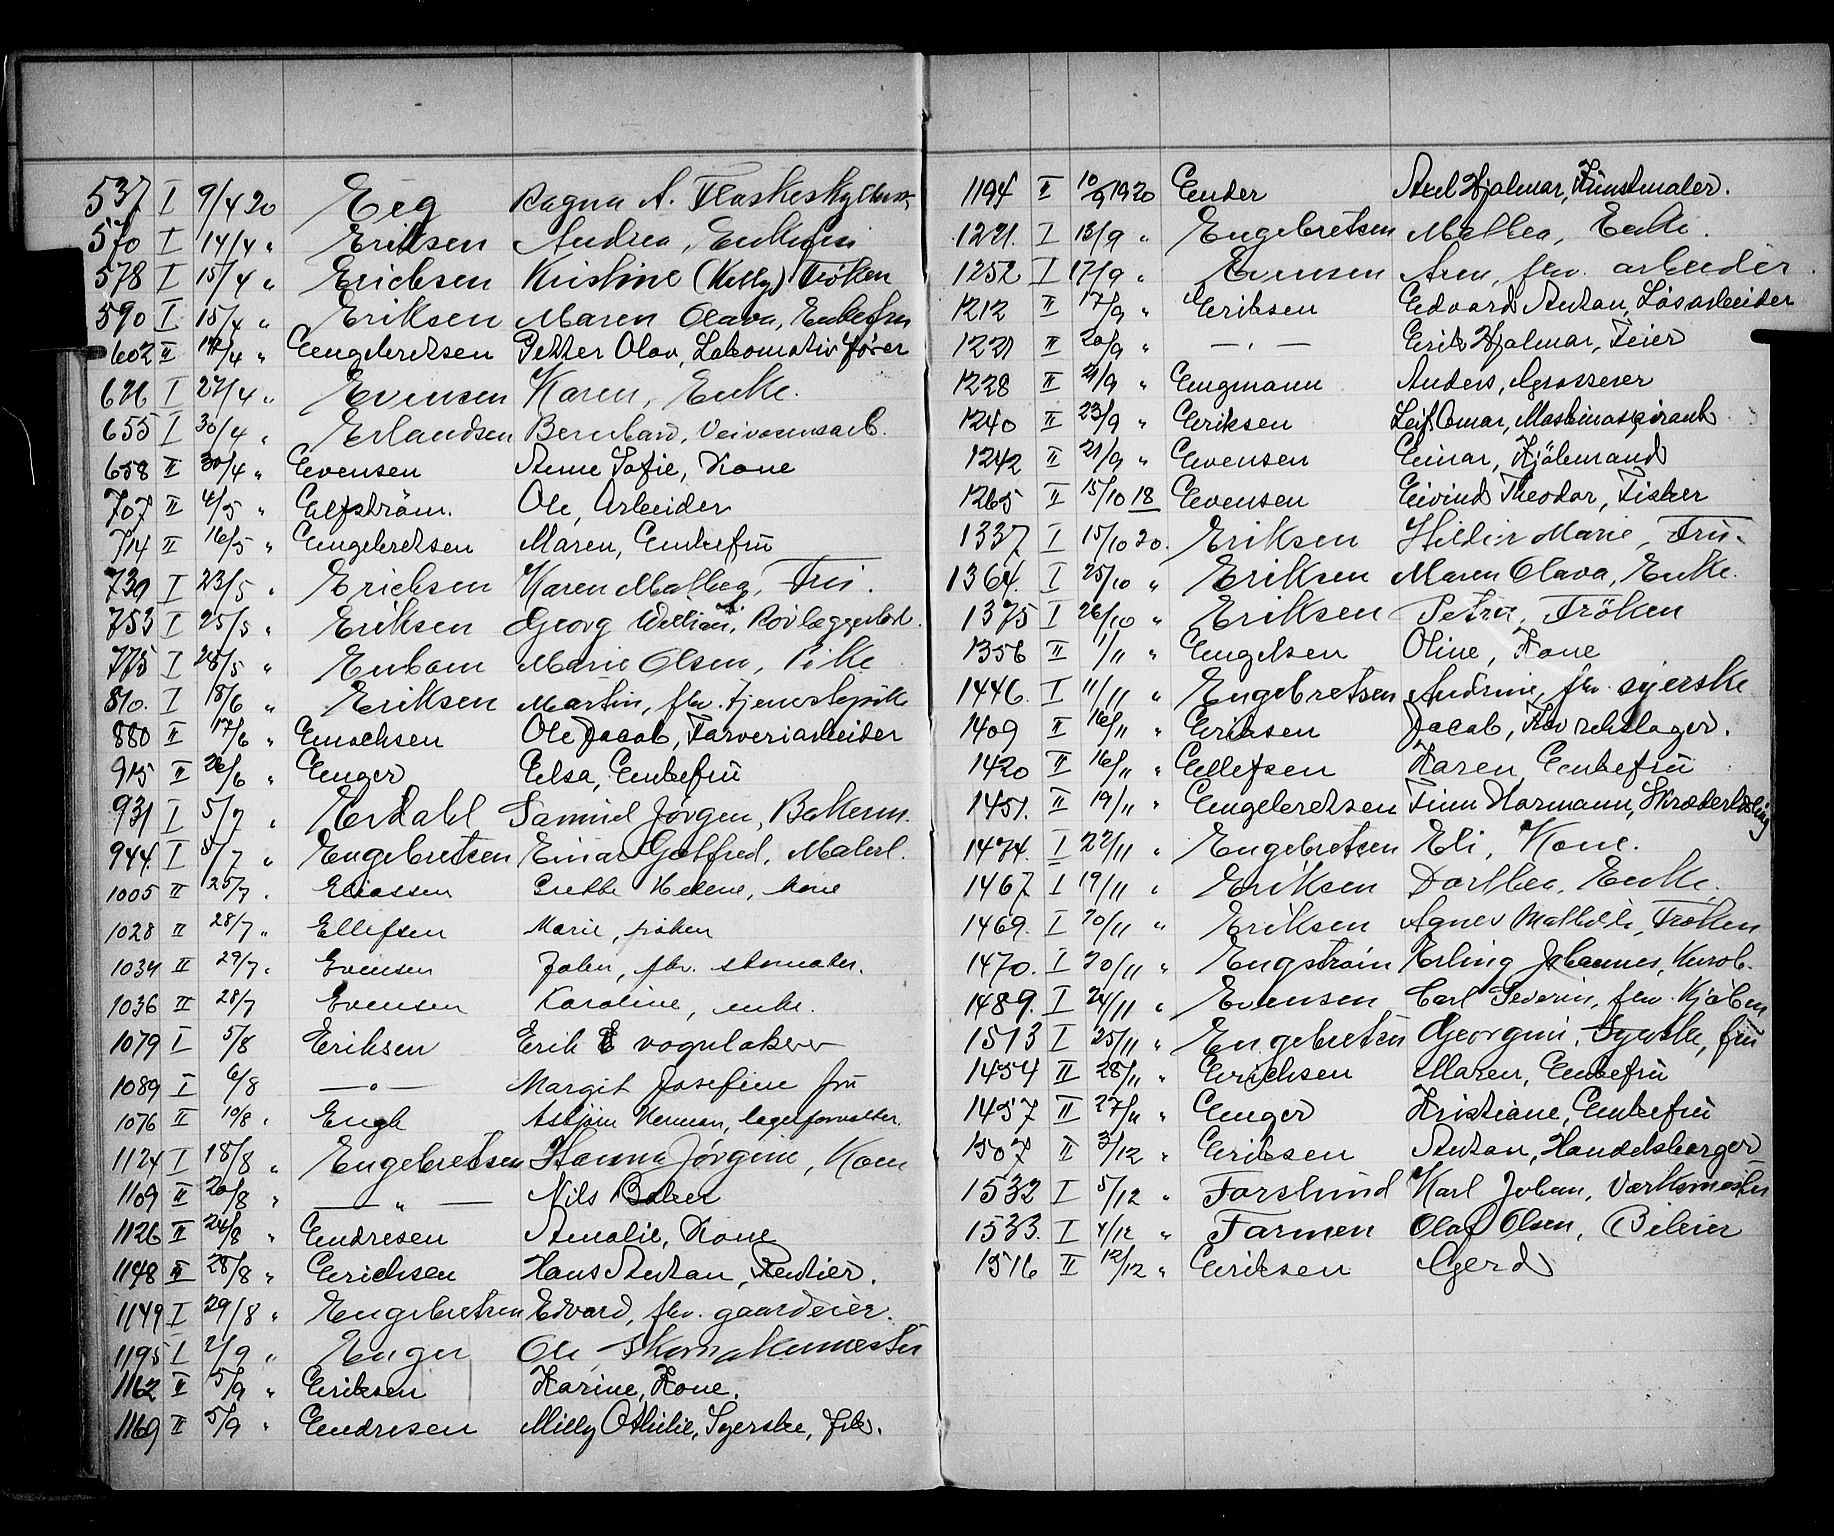 537 I 9/4 20 Eeg Ragna A. Flaskeskyllersk.
570 I 14/4 " Eriksen Andrea, Enkefru
578 I 15/4 " Erichsen Kristine (Kelly) Frøken
590 I 15/4 " Eriksen Maren Olava, Enkefru
602 II 17/4 " Engebretsen Petter Olav, Lokomotivfører
626 I 27/4 " Evensen Karen, Enke.
655 I 30/4 " Erlandsen Bernhard, Veivæsensarb.
658 II 30/4 " Evensen Anne Sofie, Kone
707 II 4/5 " Elfström. Ole, Arbeider
714 II 16/5 " Engebretsen Maren, Enkefru
730 I 23/5 " Erichsen Karen Mathea, Fru.
753 I 25/5 " Eriksen Georg William, Rørlæggerlærl.
775 I 28/5 " Enbom Marie Olsen, Pike
810. I 18/6 " Eriksen Martin, fhv. tjenestepike
880 II 17/6 " Enochsen Ole Jacob, Farveriarbeider
915 II 26/6 " Enger Elsa, Enkefru
931 I 5/7 " Erdahl Samuel Jørgen, Bokerm.
944. I 8/7 " Engebretsen Einar Gotfred, Malerl.
1005 II 25/7 " Eliassen Grethe Helene, kone
1028 II 28/7 " Ellefsen Marie, frøken
1034 II 29/7 " Evensen John, fhv. skomaker.
1036 II 28/7 Evensen Karoline, enke.
1079 I 5/8 Eriksen Erik E vognlakerer
1089 I 6/8 — " — Margit Josefine fru
1076 II 10/8 " Engh Asbjørn Herman, lagerforvalter.
1124 I 18/8 " Engebretsen Hanna Jørgine, Kone
1109 II 20/8 " — " — Nils Baker
1126 II 24/8 " Endresen Amalie, Kone
1148 II 28/8 " Erichsen Hans Anton, Rentier.
1149 I 29/8 " Engebretsen Edvard, fhv. gaardeier.
1195 I 2/9 " Enger Ole, Skomakermester
1162 II 5/9 " Eriksen Karine, Kone.
1169 II 5/9 " Endresen Milly Othilie, Syerske, frk.
1194 II 10/9 1920 Ender Axel Hjalmar, Kunstmaler.
1221. I 13/9 " Engebretsen Mathea, Enke.
1252 I 17/9 " Evensen Aren, fhv. arbeider.
1212 II 17/9 " Eriksen Edvard Anton, Løsarbeider
1221 II 20/9 " — " — Erik Hjalmar, Feier
1228 II 21/9 " Engmann Anders, Grosserer
1240 II 23/9 " Eriksen Leif Omar, Maskinaspirant
1242 II 21/9 " Evensen Einar, Kjøbmand
1265 II 15/10 18 Evensen Eivind Theodor, Fisker
1337 I 15/10 20. Eriksen Hildur Marie, Fru.
1364. I 25/10 " Eriksen Maren Olava, Enke.
1375 I 26/10 " Eriksen Petra, Frøken
1356 II 1/11 " Engelsen Oline, Kone
1446. I 11/11 " Engebretsen Andrine, fhv. syerske
1409 II 16/11 " Eriksen Jacob,
1420 II 16/11 " Ellefsen Karen, Enkefru
1451. II 19/11 " Engebretsen Finn Harmann, Skræderlærling
1474. I 22/11 " Engebretsen Eli, Kone.
1467 I 19/11 " Eriksen Dorthea, Enke.
1469. I 20/11 " Eriksen Agnes Mathilde, Frøken
1470. I 20/11 " Engstrøm Erling Johannes, Kurvb.
1489. I 24/11 " Evensen Carl Severin, fhv. Kjøbm
1513 I 25/11 " Engebretsen Georgine, Syerske, fru
1454 II 28/11 " Erichsen Maren, Enkefru
1457 II 27/11 " Enger Kristiane, Enkefru
1507 II 3/12 " Eriksen Anton, Handelsborger
1532 I 5/12 " Forslund Karl Johan, Værksmester
1533. I 7/12 " Farmen Olaf Olsen, Bileier
1516 II 12/12 " Eriksen Gerd